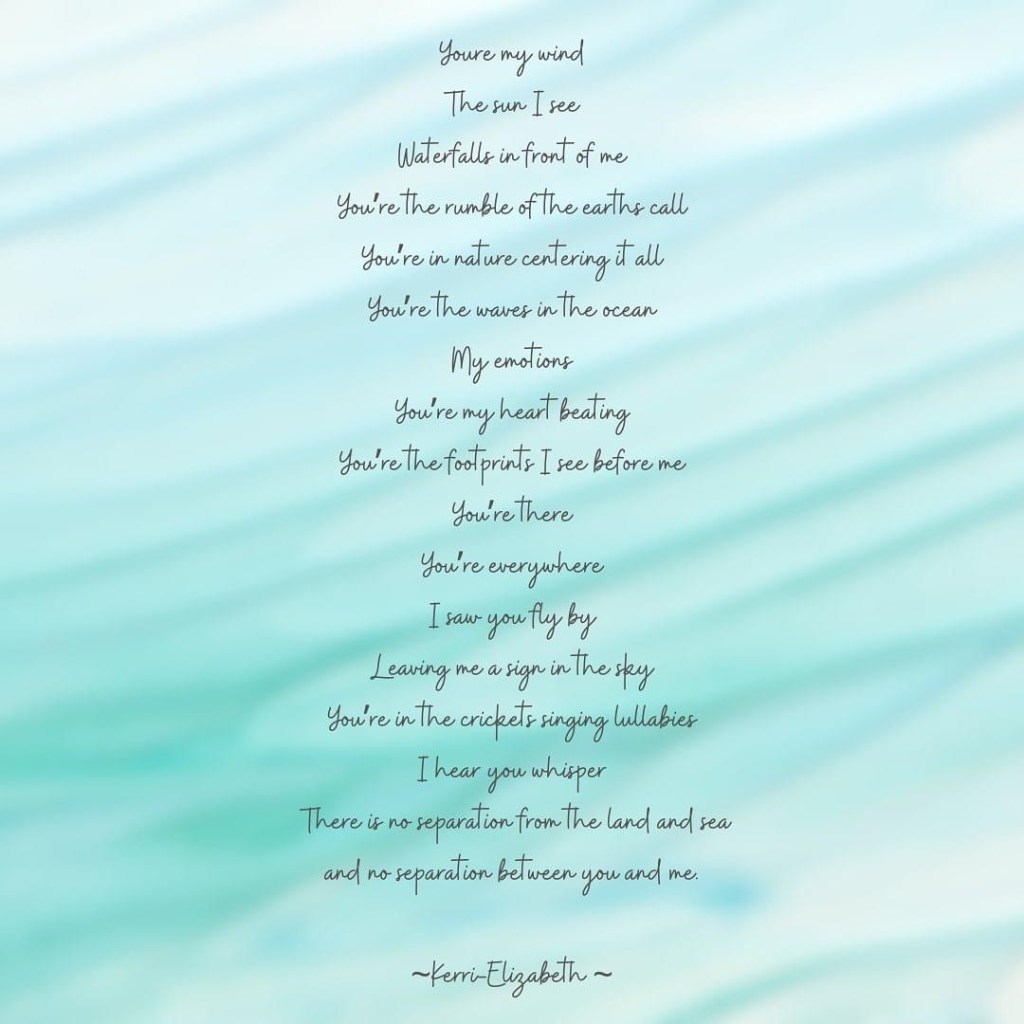 Youre my wind
The sun I see
Waterfalls in front of me
You're the rumble of the earths call
You're in nature centering it all
You're the waves in the ocean
My emotions
You're my heart beating
You're the footprints I see before me
You're there
You're everywhere
I saw you fly by
Leaving me a sign in the sky
You're in the crickets singing lullabies
I hear you whisper
There is no separation from the land and sea
and no separation between you and me.
~Kerri-Elizabeth ~